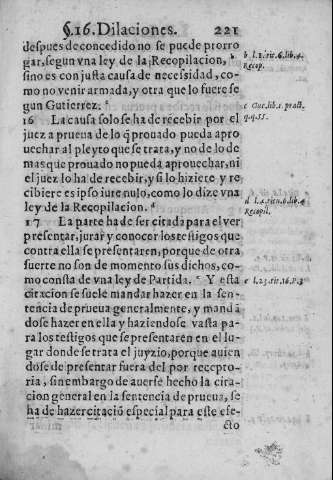 §.16. Dilaciones. 221
despues de concedido no se puede prorro
gar, segun vna ley de la Recopilacion, b
sino es con justa causa de necessidad, co-
mo no venir armada, y otra que lo fuere se
gun Gutierrez. c
16 La causa solo se ha de recebir por el
juez a prueua de lo q̃ prouado pueda apro
uechar al pleyto que se trata, y no de lo de
mas que prouado no pueda aprouechar, ni
el juez lo ha de recebir, y si lo hiziere y re
cibiere es ipso iure nulo, como lo dize vna
ley de la Recopilacion. d
17 La parte ha de ser citada para el ver
presentar, jurar y conocer los testigos que
contra ella se presentaren, porque de otra
suerte no son de momento sus dichos, co-
mo consta de vna ley de Partida. e Y esta
citacion se suele mandar hazer en la sen-
tencia de prueua generalmente, y manda
dose hazer en ella y haziendose vasta pa-
ra los testigos que se presentaren en el lu-
gar donde se trata el juyzio, porque auien
dose de presentar fuera del por recepto-
ria, sin embargo de auerse hecho la cita-
cion general en la sentencia de prueua, se
ha de hazer citació especial para este efe-
cto
b l. 1. tit. 6. lib. 4.
Recop.
c Gut. lib. 1. pract.
q. 55.
d l. 4. tit. 6. lib. 4
Recopil.
e l. 23. tit. 16. P. 3